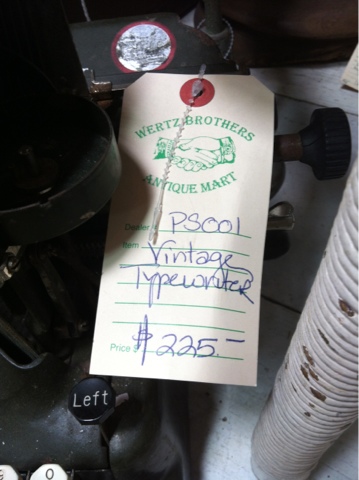 WERTZ BROTHERS
ANTIQUE MART
Dealer PSOO1
Item Vintage
Typewriter
Price $ 225.–
Left
O